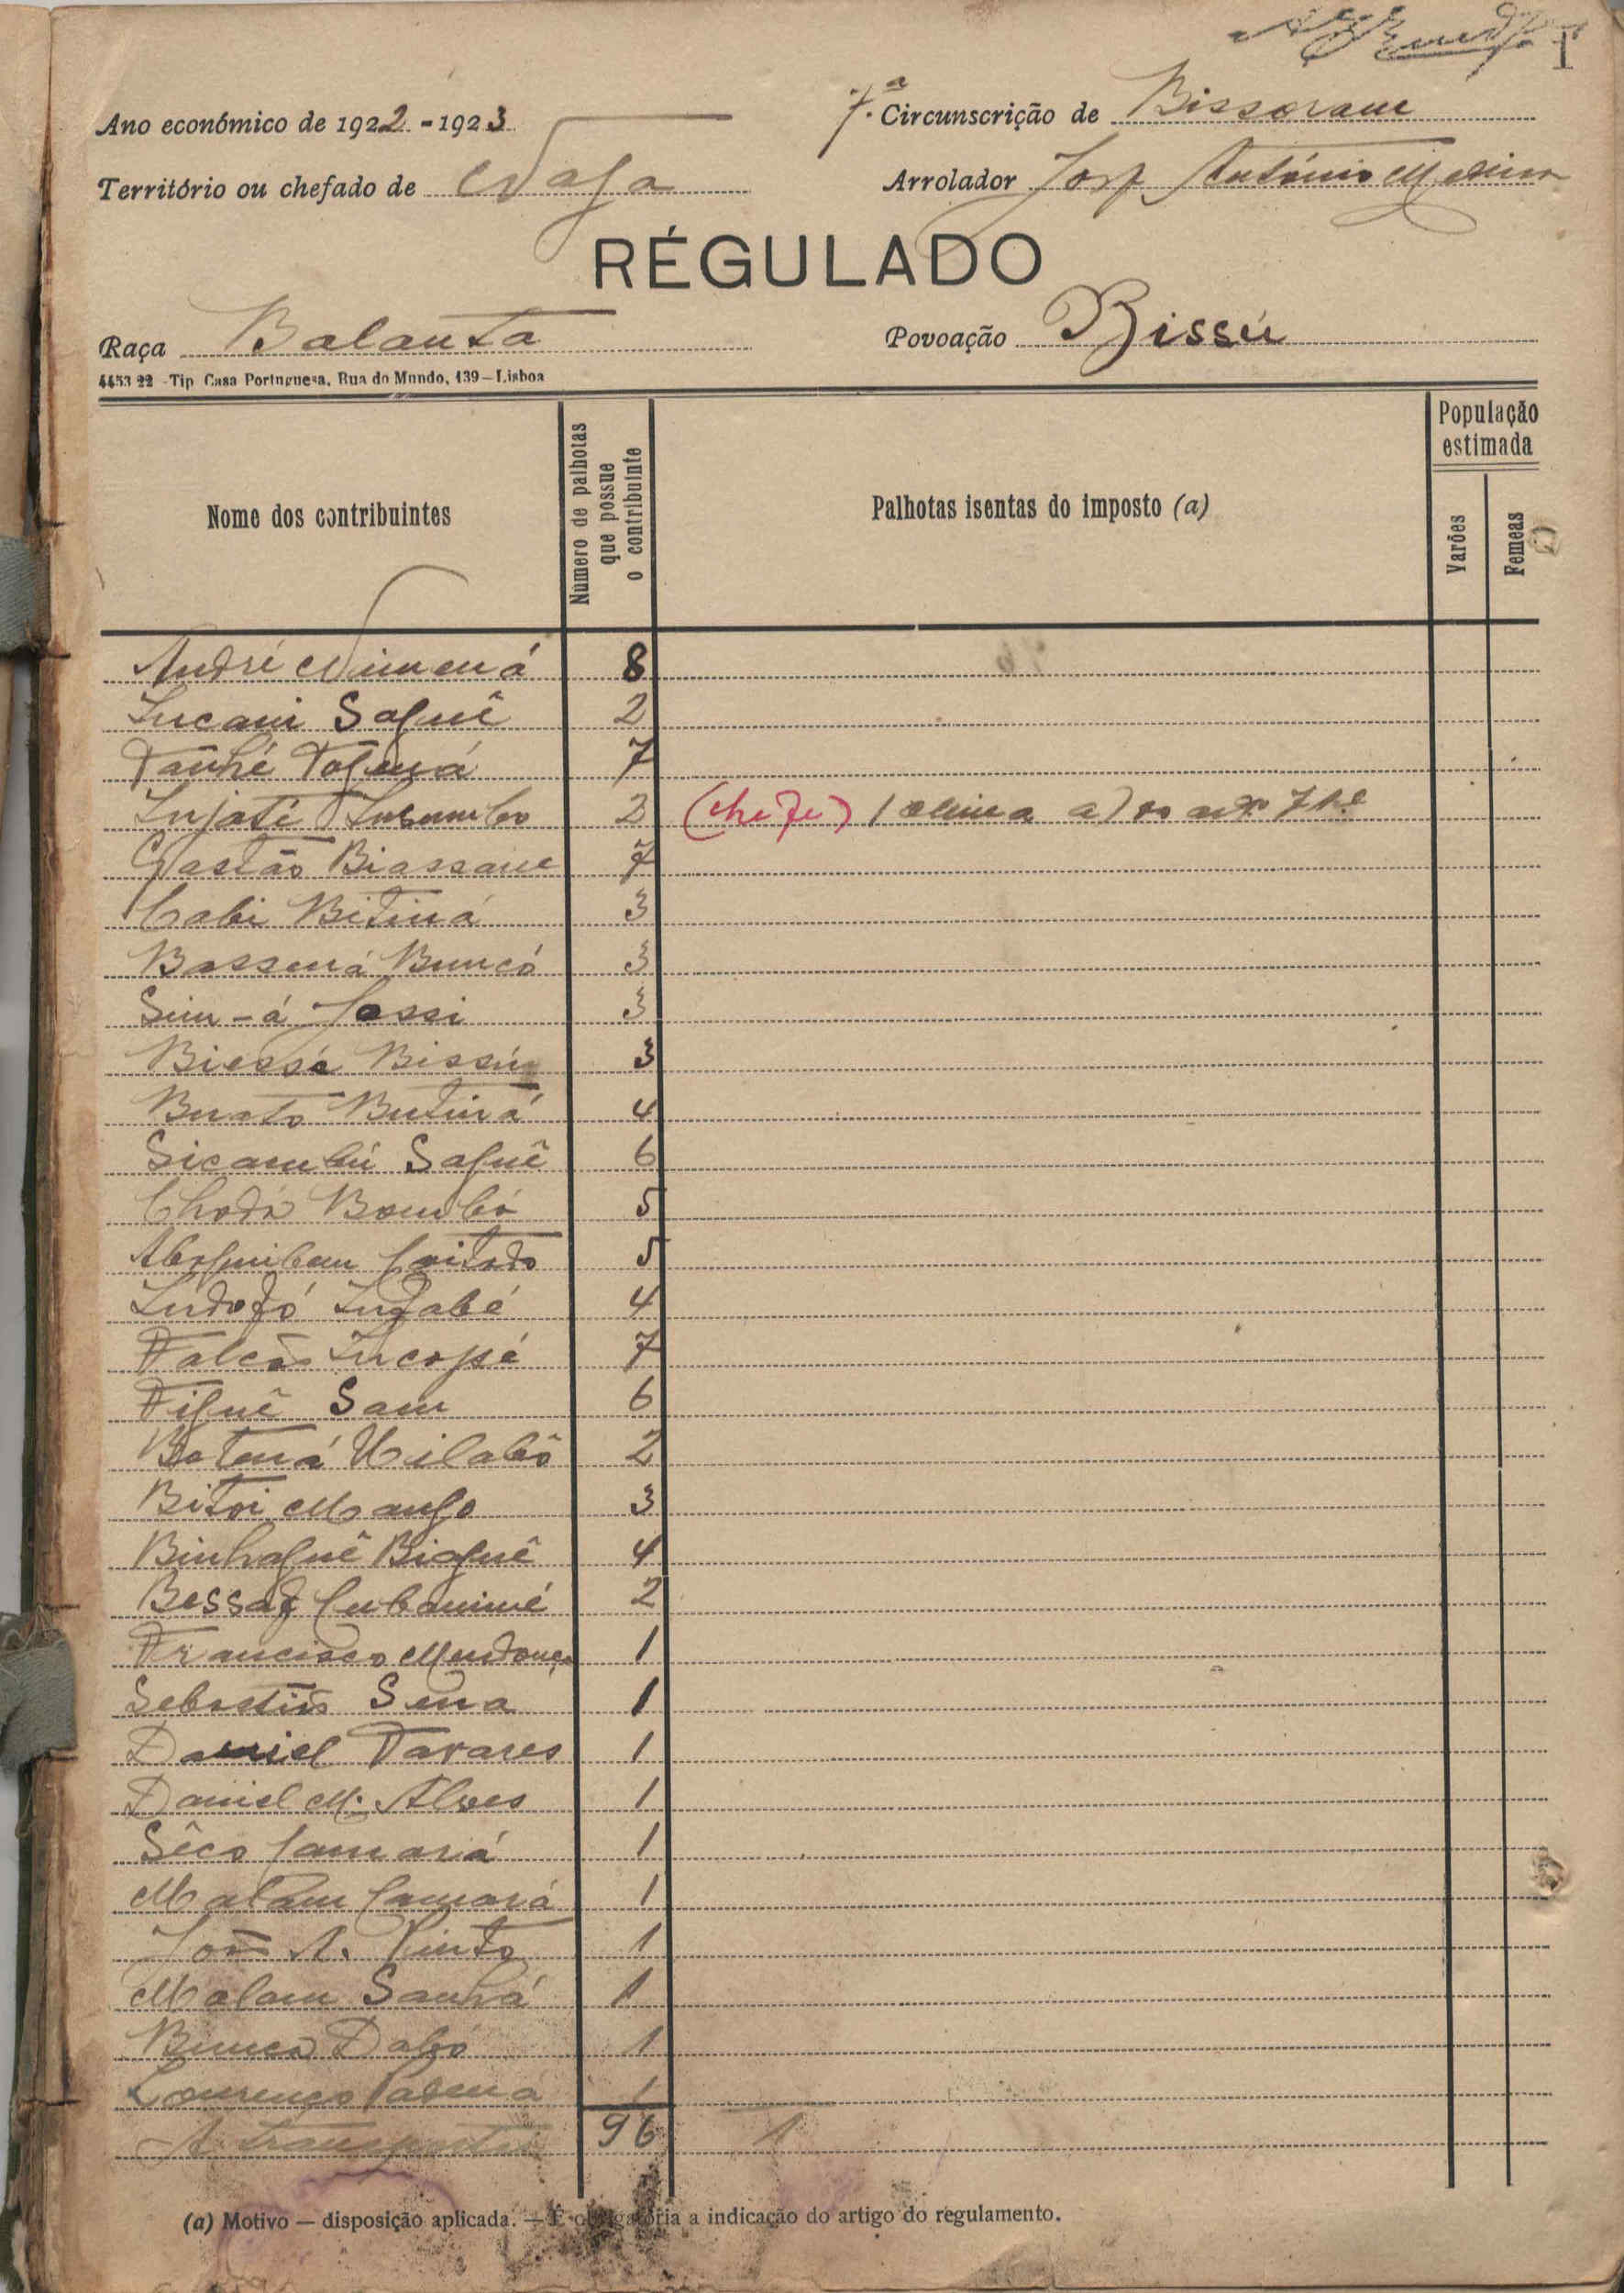 1
Ano económico de 1922-1923
7.ª Circunscrição de Bissoram
Território ou chefado de Naga
Arrolador José António Medina
RÉGULADO
Raça Balanta
Povoação Bissú
4453 22 - Tip Casa Portuguesa, Rua do Mundo, 139—Lisboa
Nome dos contribuintes
Número de palhotas que possue o contribuinte
Palhotas isentas do imposto (a)
População estimada
Varões
Femeas
André 8
Saguê 2
Tanhé 7
2 (chefe) 1 alinea a) do artº 71º
Gastão Biassam 7
Cabi Bitiná 3
Bassená Buncó 3
Sim-á Jassi 3
Biessá Bissim 3
Butiná 4
Sicambú Saguê 6
Chodá Bombó 5
5
4
Falcão 7
Figuê Sam 6
Botená 2
Bitoi Mango 3
Binhaguê Biaguê 4
2
Francisco Mendonça 1
Sebastião Sena 1
Daniel Tavares 1
Daniel M. Alves 1
Sêco Camará 1
Malam Camará 1
João A. Pinto 1
Malam Sanhá 1
Dabó 1
Lourenço 1
A transportar 96 1
(a) Motivo — disposição aplicada. — É obrigatória a indicação do artigo do regulamento.